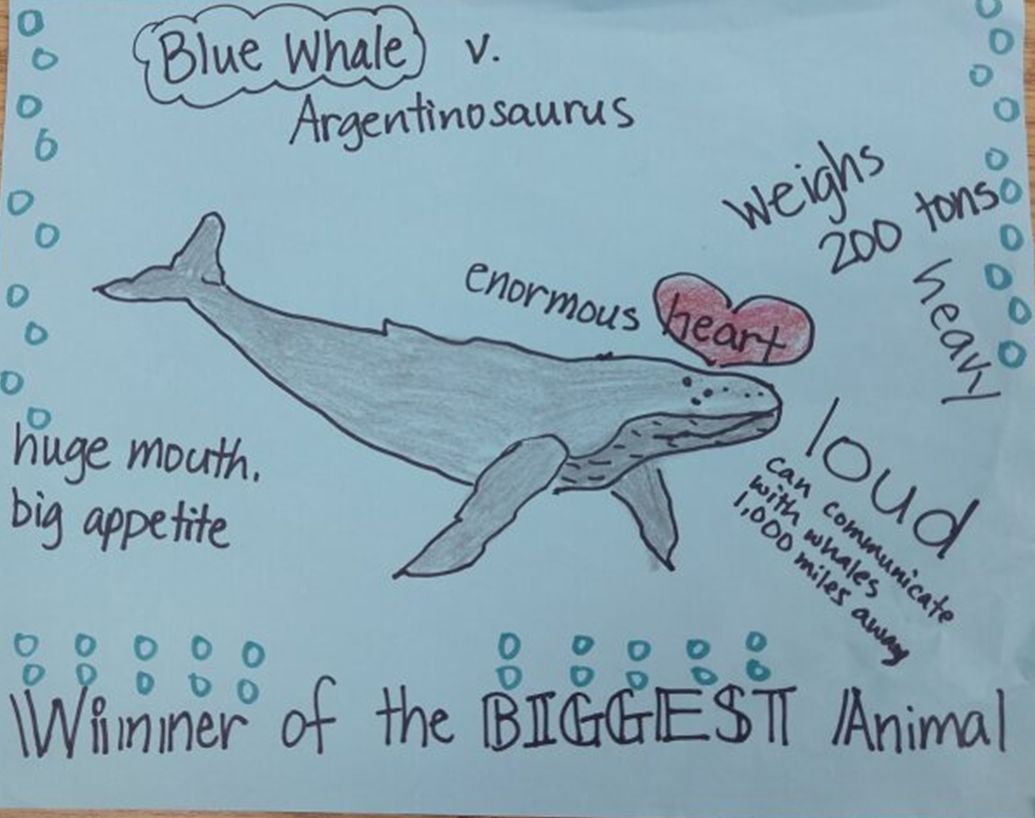 Blue Whale v.
Argentinosaurus
Weighs
200 tons
heavy
enormous heart
loud
can communicate
with whales
1,000 miles away
huge mouth.
big appetite
Winner of the BIGGEST Animal